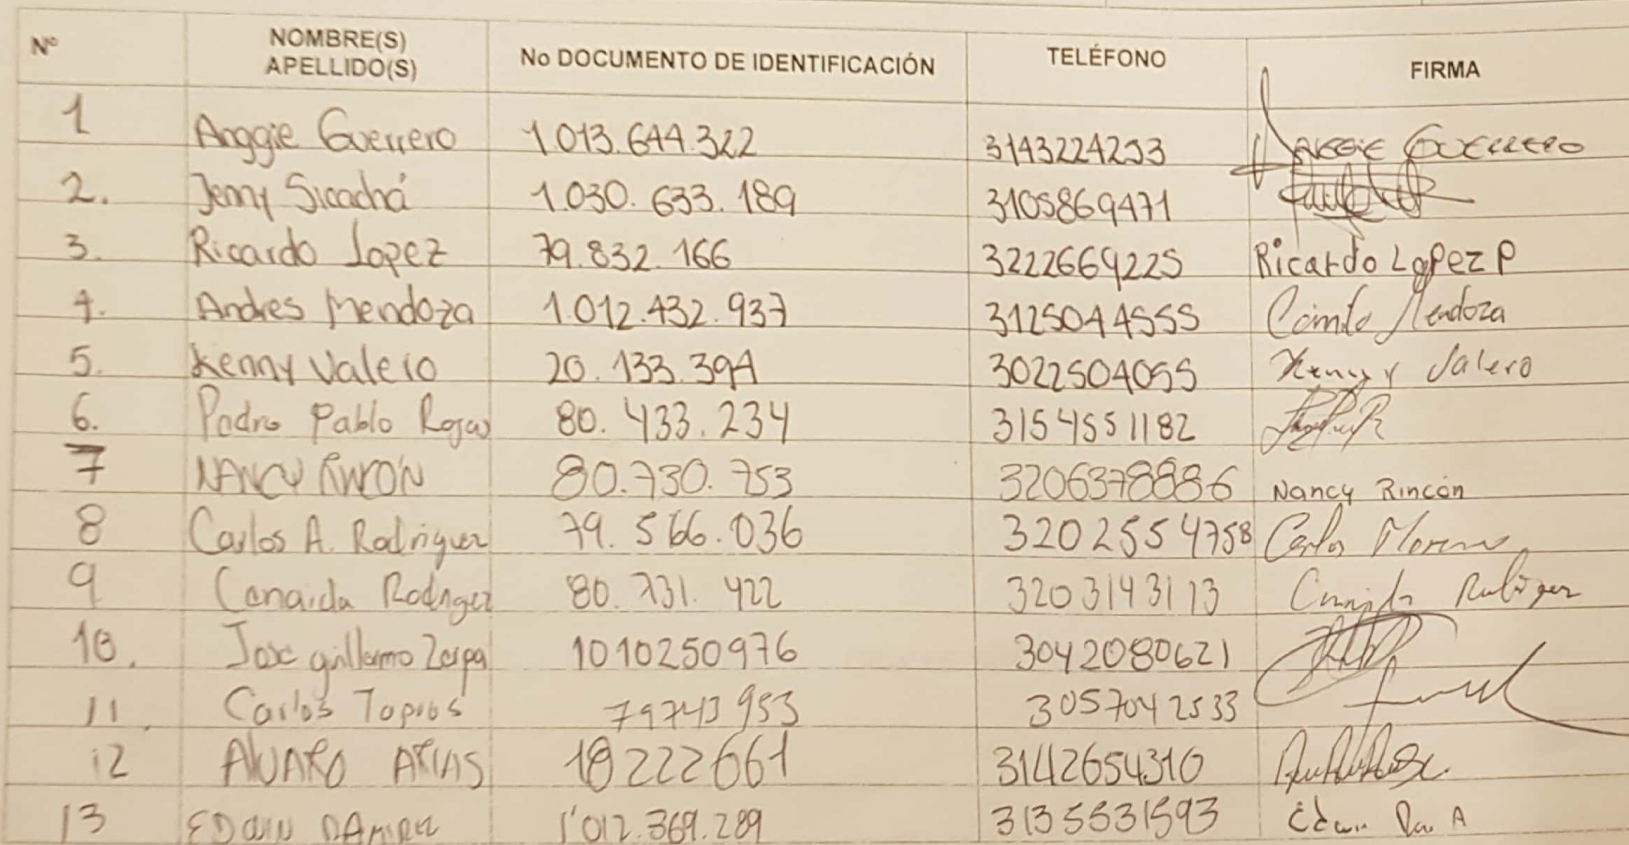 Nº NOMBRE(S) APELLIDO(S) No DOCUMENTO DE IDENTIFICACIÓN TELÉFONO FIRMA
1 Anggie Guerrero 1.013.644.322 3143224253 ANGGIE GUERRERO
2. Jenny Sicachá 1.030.633.189 3105869471
3. Ricardo Lopez 79.832.166 3222669225 Ricardo Lopez P
4. Andres Mendoza 1.012.432.937 3125044555 Camilo Mendoza
5. Kenny Valero 20.133.394 3022504055 Kenny Valero
6. Pedro Pablo Rojas 80.433.234 3154551182
7 NANCY RINCÓN 80.730.753 3206378886 Nancy Rincón
8 Carlos A. Rodriguez 79.566.036 3202554758 Carlos Moreno
9 Canaida Rodriguez 80.731.422 3203143113
10. Jose guillermo Zerpa 1010250976 3042080621
11 Carlos 79743953 3057042533
12 ALVARO ARIAS 18222661 3142654310
13 EDWIN 1'012.369.289 3135531593